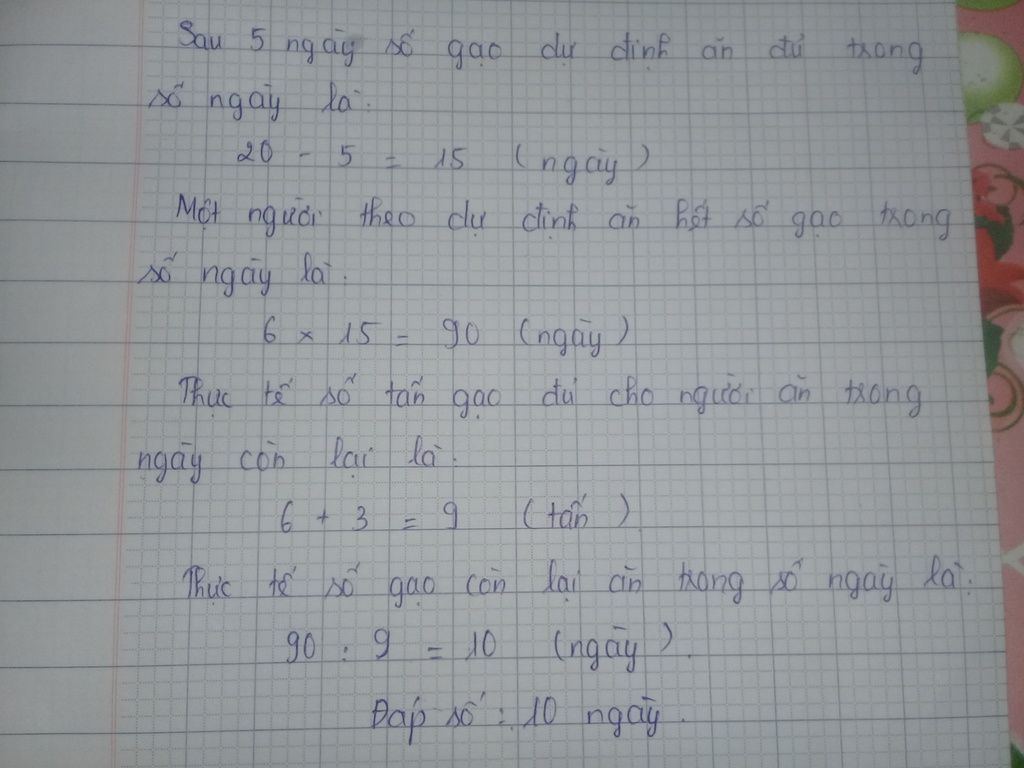 Sau 5 ngày số gạo dự định ăn đủ trong
số ngày là:
20 - 5 = 15 (ngày)
Một người theo dự định ăn hết số gạo trong
số ngày là:
6 × 15 = 90 (ngày)
Thực tế số tấn gạo đủ cho người ăn trong
ngày còn lại là:
6 + 3 = 9 (tấn)
Thực tế số gạo còn lại ăn trong số ngày là:
90 : 9 = 10 (ngày).
Đáp số: 10 ngày.